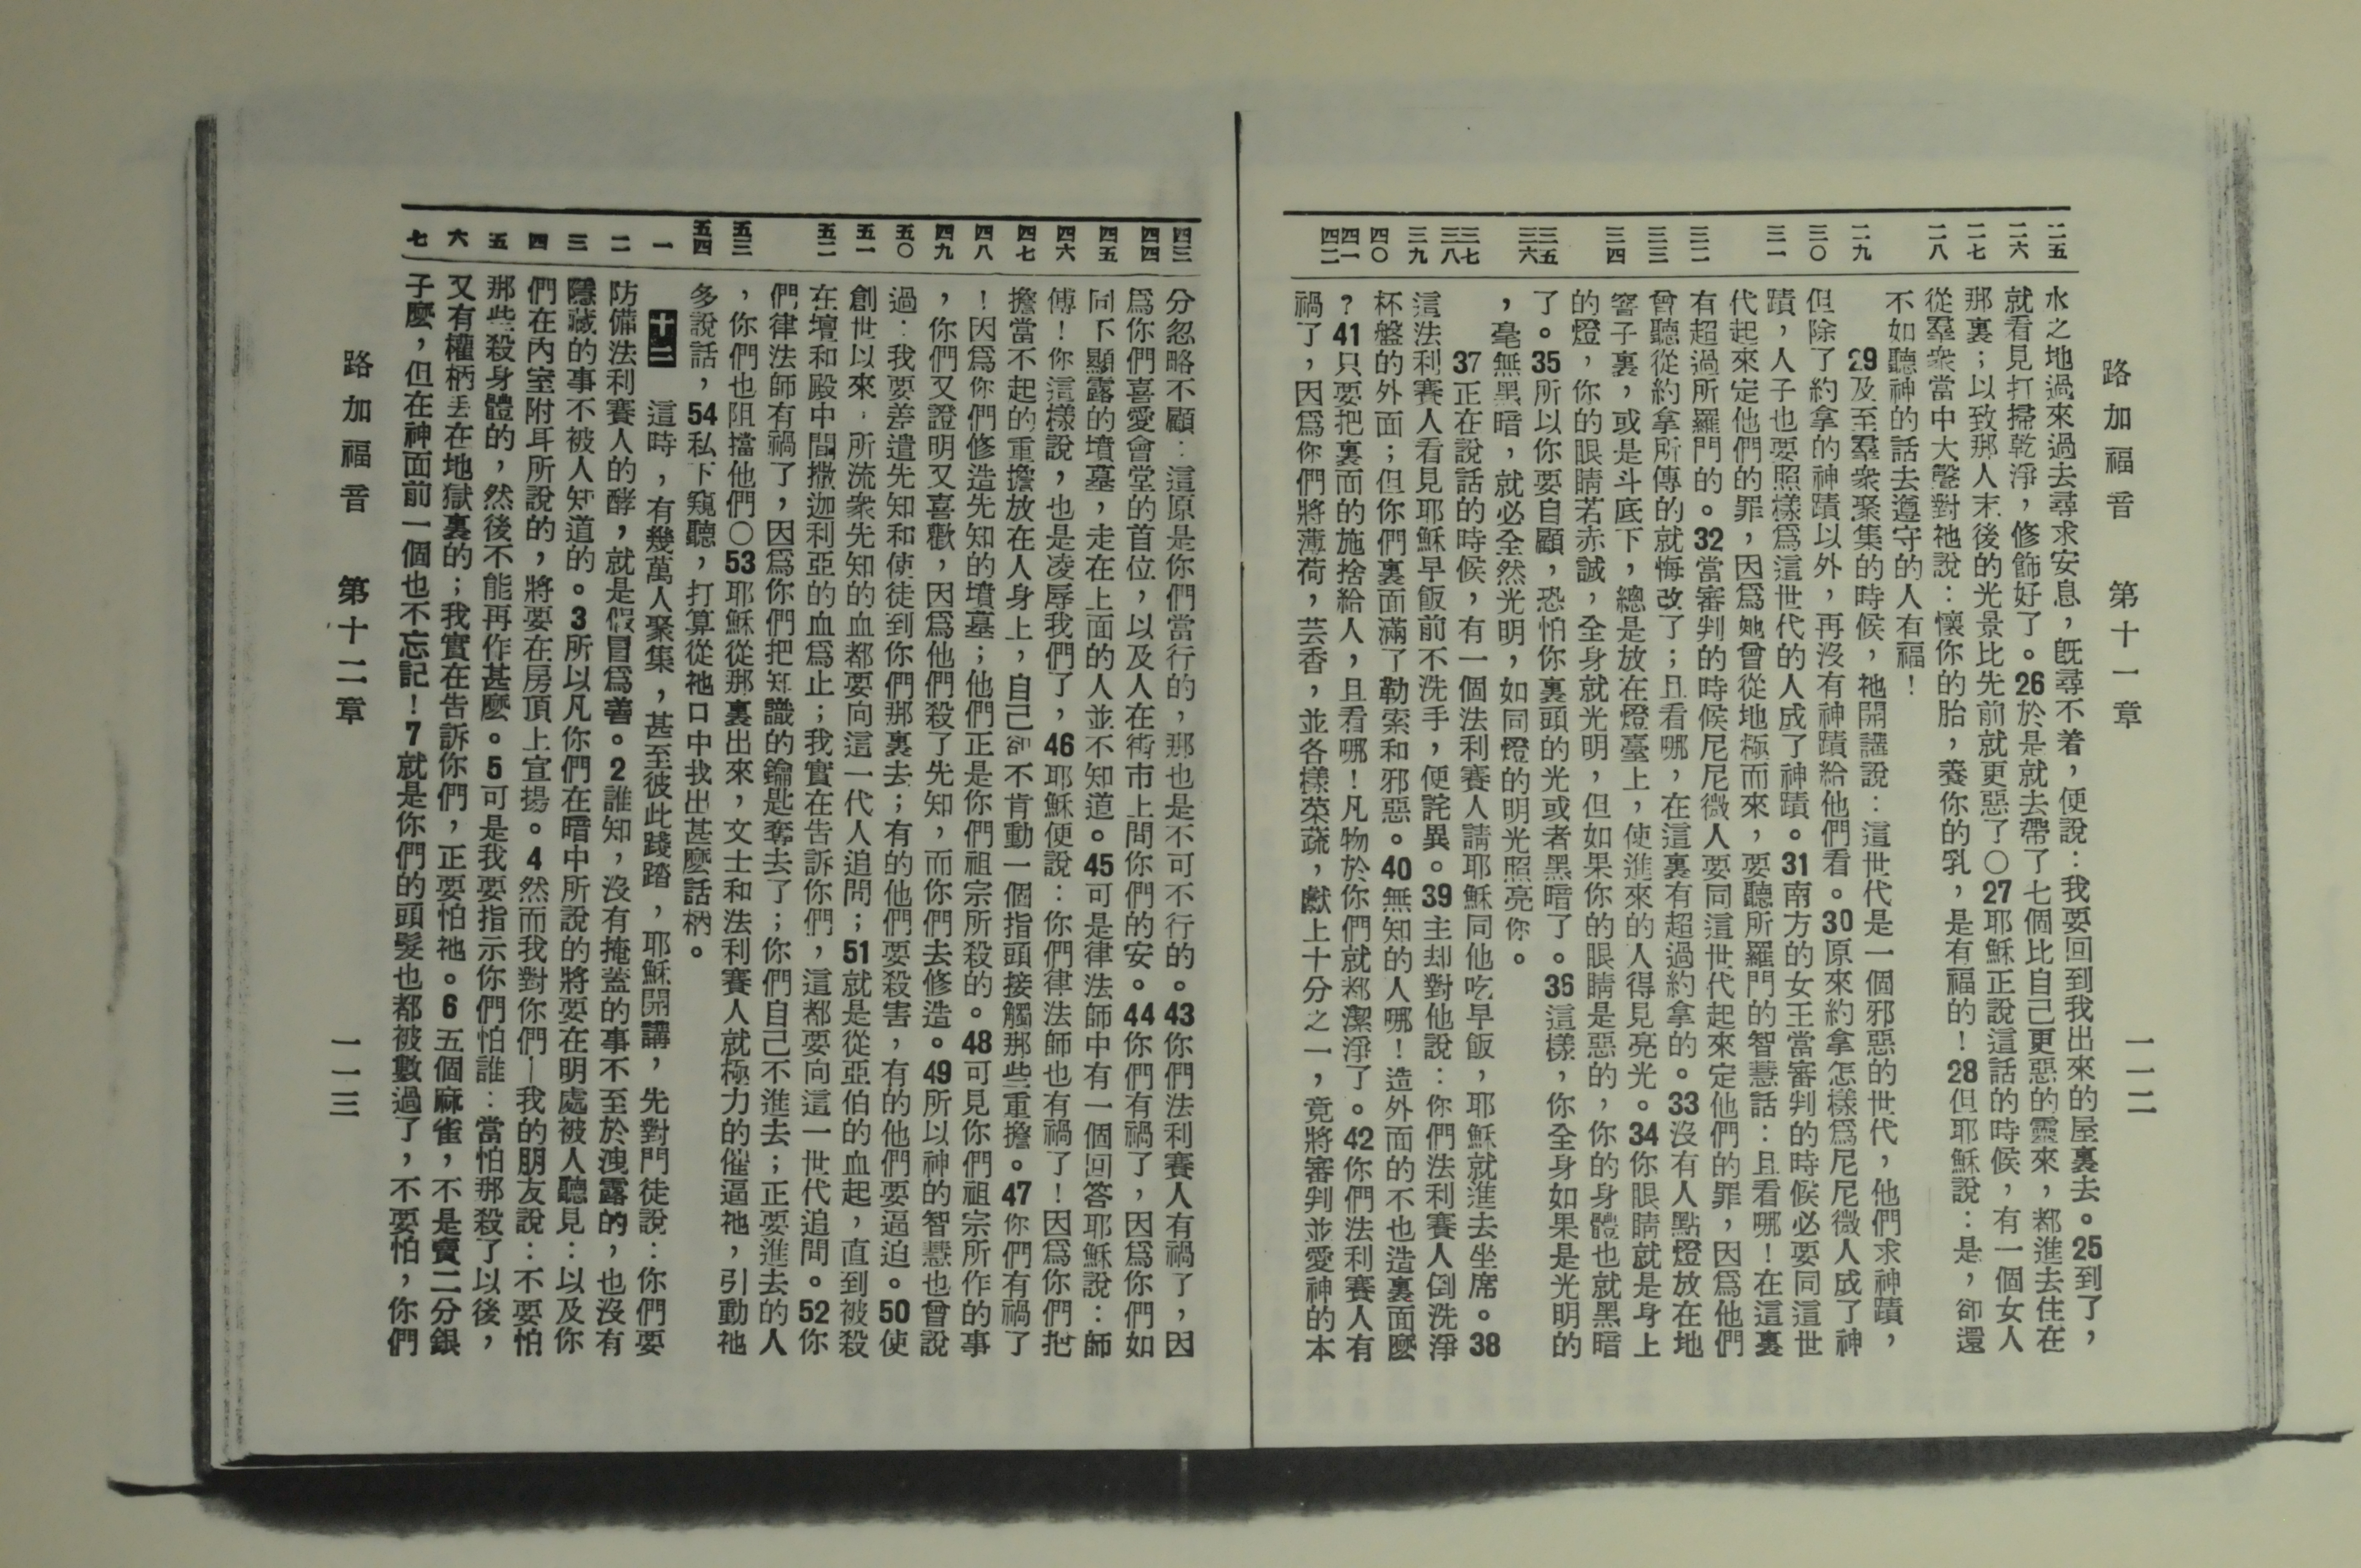 路加福音　第十一章　一一二
二五
二六
二七
二八
二九
三〇
三一
三二
三三
三四
三五
三六
三七
三八
三九
四〇
四一
四二
水之地過來過去尋求安息，旣尋不着，便說：我要回到我出來的屋裏去。25到了，
就看見打掃乾淨，修飾好了。26於是就去帶了七個比自己更惡的靈來，都進去住在
那裏；以致那人末後的光景比先前就更惡了〇27耶穌正說這話的時候，有一個女人
從羣衆當中大聲對祂說：懷你的胎，養你的乳，是有福的！28但耶穌說：是，卻還
不如聽神的話去遵守的人有福！
29及至羣衆聚集的時候，祂開講說：這世代是一個邪惡的世代，他們求神蹟，
但除了約拿的神蹟以外，再沒有神蹟給他們看。30原來約拿怎樣爲尼尼微人成了神
蹟，人子也要照樣爲這世代的人成了神蹟。31南方的女王當審判的時候必要同這世
代起來定他們的罪，因爲她曾從地極而來，要聽所羅門的智慧話：且看哪！在這裏
有超過所羅門的。32當審判的時候尼尼微人要同這世代起來定他們的罪，因爲他們
曾聽從約拿所傳的就悔改了；且看哪，在這裏有超過約拿的。33沒有人點燈放在地
窨子裏，或是斗底下，總是放在燈臺上，使進來的人得見亮光。34你眼睛就是身上
的燈，你的眼睛若赤誠，全身就光明，但如果你的眼睛是惡的，你的身體也就黑暗
了。35所以你要自顧，恐怕你裏頭的光或者黑暗了。36這樣，你全身如果是光明的
，毫無黑暗，就必全然光明，如同燈的明光照亮你。
37正在說話的時候，有一個法利賽人請耶穌同他吃早飯，耶穌就進去坐席。38
這法利賽人看見耶穌早飯前不洗手，便詫異。39主却對他說：你們法利賽人倒洗淨
杯盤的外面；但你們裏面滿了勒索和邪惡。40無知的人哪！造外面的不也造裏面麼
？41只要把裏面的施捨給人，且看哪！凡物於你們就都潔淨了。42你們法利賽人有
禍了，因爲你們將薄荷，芸香，並各樣菜蔬，獻上十分之一，竟將審判並愛神的本
四三
四四
四五
四六
四七
四八
四九
五〇
五一
五二
五三
五四
一
二
三
四
五
六
七
分忽略不顧：這原是你們當行的，那也是不可不行的。43你們法利賽人有禍了，因
爲你們喜愛會堂的首位，以及人在街市上問你們的安。44你們有禍了，因爲你們如
同不顯露的墳墓，走在上面的人並不知道。45可是律法師中有一個回答耶穌說：師
傅！你這樣說，也是凌辱我們了，46耶穌便說：你們律法師也有禍了！因爲你們把
擔當不起的重擔放在人身上，自己卻不肯動一個指頭接觸那些重擔。47你們有禍了
！因爲你們修造先知的墳墓；他們正是你們祖宗所殺的。48可見你們祖宗所作的事
，你們又證明又喜歡，因爲他們殺了先知，而你們去修造。49所以神的智慧也曾說
過：我要差遣先知和使徒到你們那裏去；有的他們要殺害，有的他們要逼迫。50使
創世以來，所流衆先知的血都要向這一代人追問；51就是從亞伯的血起，直到被殺
在壇和殿中間撒迦利亞的血爲止；我實在告訴你們，這都要向這一世代追問。52你
們律法師有禍了，因爲你們把知識的鑰匙奪去了；你們自己不進去；正要進去的人
，你們也阻擋他們〇53耶穌從那裏出來，文士和法利賽人就極力的催逼祂，引動祂
多說話，54私下窺聽，打算從祂口中找出甚麼話柄。
十二　這時，有幾萬人聚集，甚至彼此踐踏，耶穌開講，先對門徒說：你們要
防備法利賽人的酵，就是假冒爲善。2誰知，沒有掩蓋的事不至於洩露的，也沒有
隱藏的事不被人知道的。3所以凡你們在暗中所說的將要在明處被人聽見：以及你
們在內室附耳所說的，將要在房頂上宣揚。4然而我對你們—我的朋友說：不要怕
那些殺身體的，然後不能再作甚麼。5可是我要指示你們怕誰：當怕那殺了以後，
又有權柄丟在地獄裏的；我實在告訴你們，正要怕祂。6五個麻雀，不是賣二分銀
子麼，但在神面前一個也不忘記！7就是你們的頭髮也都被數過了，不要怕，你們
路加福音　第十二章　一一三